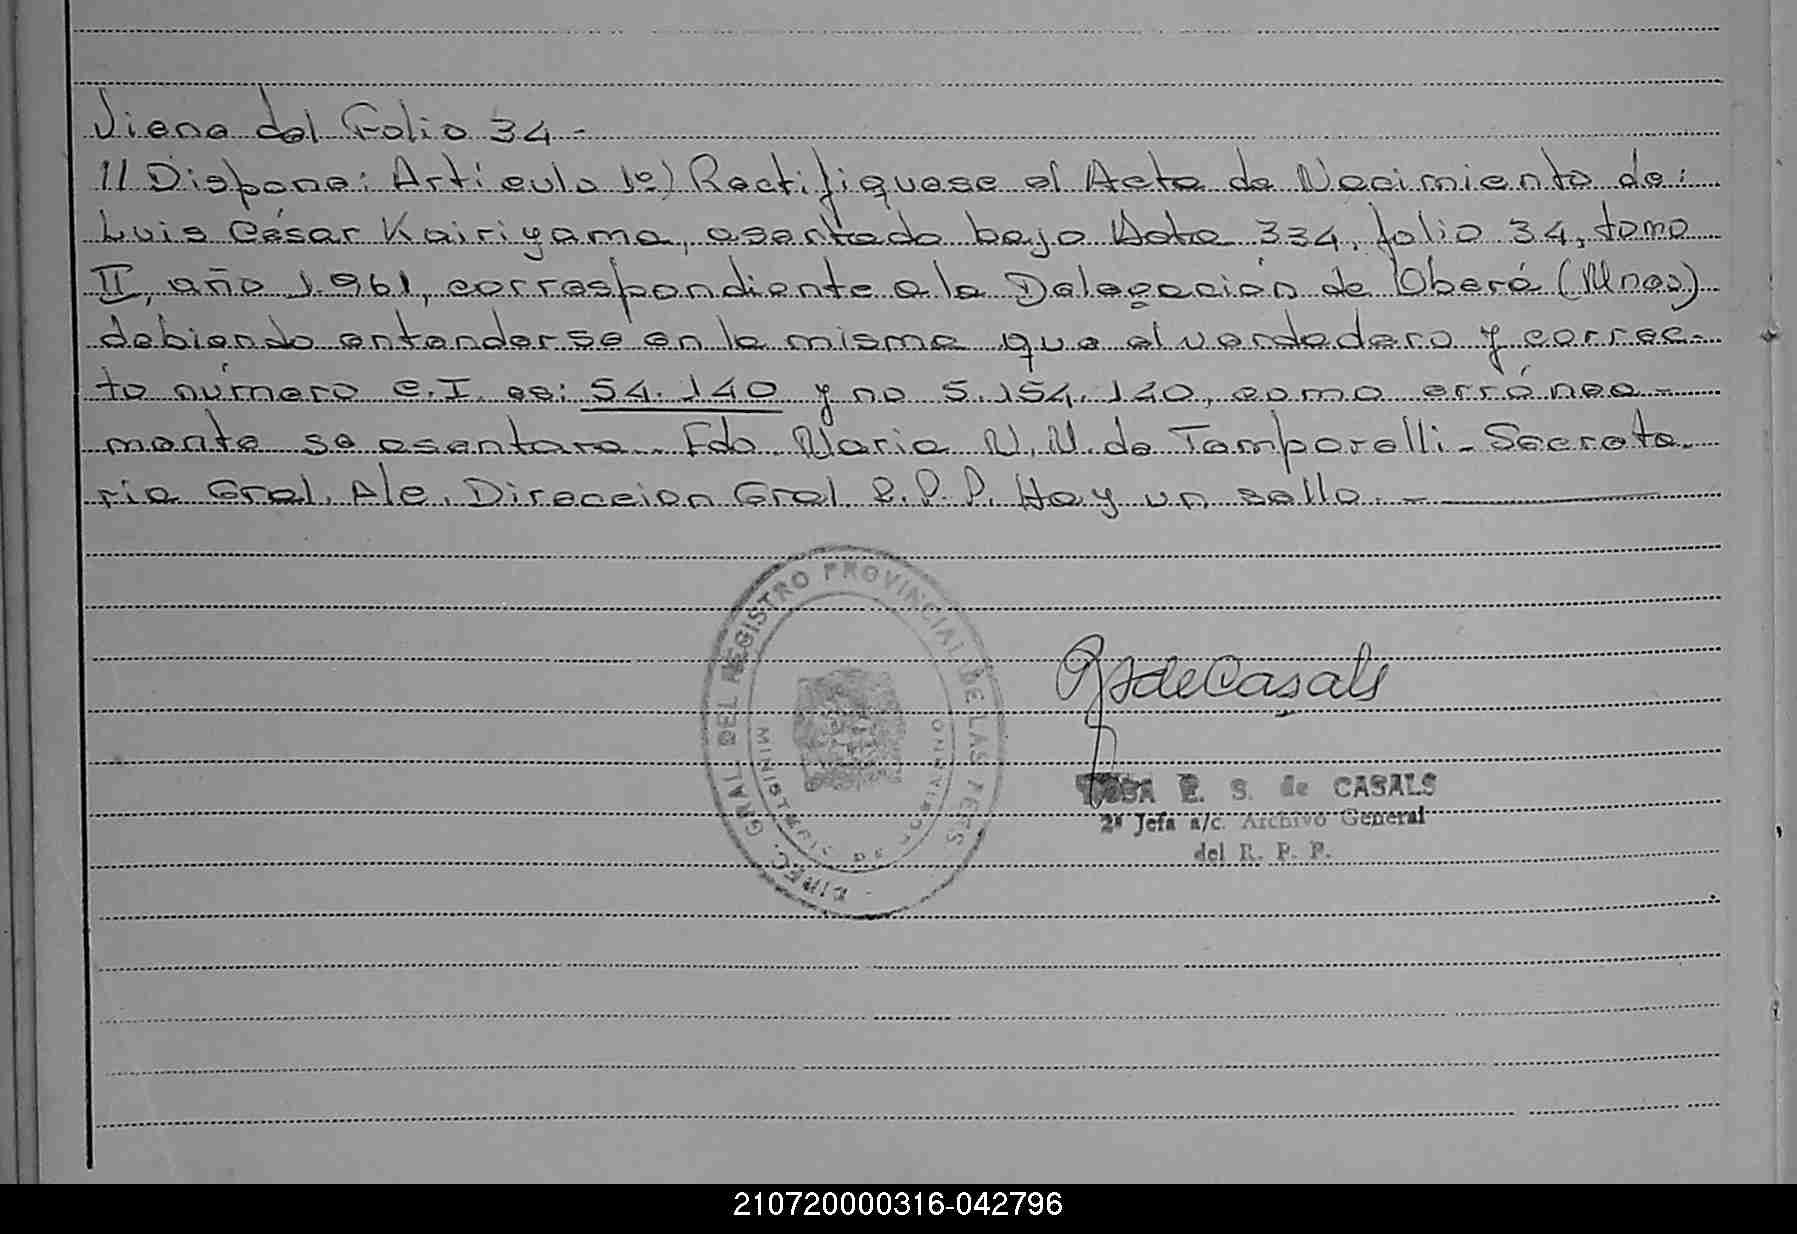 Viene del Folio 34 -
// Dispone: Artículo 1º) Rectifíquese el Acta de Nacimiento de:
Luis César Kairiyama, asentado bajo Acta 334, folio 34, tomo
II, año 1.961, correspondiente a la Delegación de Oberá (Mnes)
debiendo entenderse en la misma que el verdadero y correc-
to número C.I. es: 54.140 y no 5.154.140, como errónea-
mente se asentara. Fdo. Maria N. N. de Temporelli - Secreta-
ria Gral. A/c. Direccion Gral. R.P.P. Hay un sello. -
DIREC. GRAL. DEL REGISTRO PROVINCIAL DE LAS PERS
MINISTERIO DE GOBIERNO
R S de Casals
ROSA E. S. de CASALS
2ª Jefa a/c. Archivo General
del R. P. P.
210720000316-042796